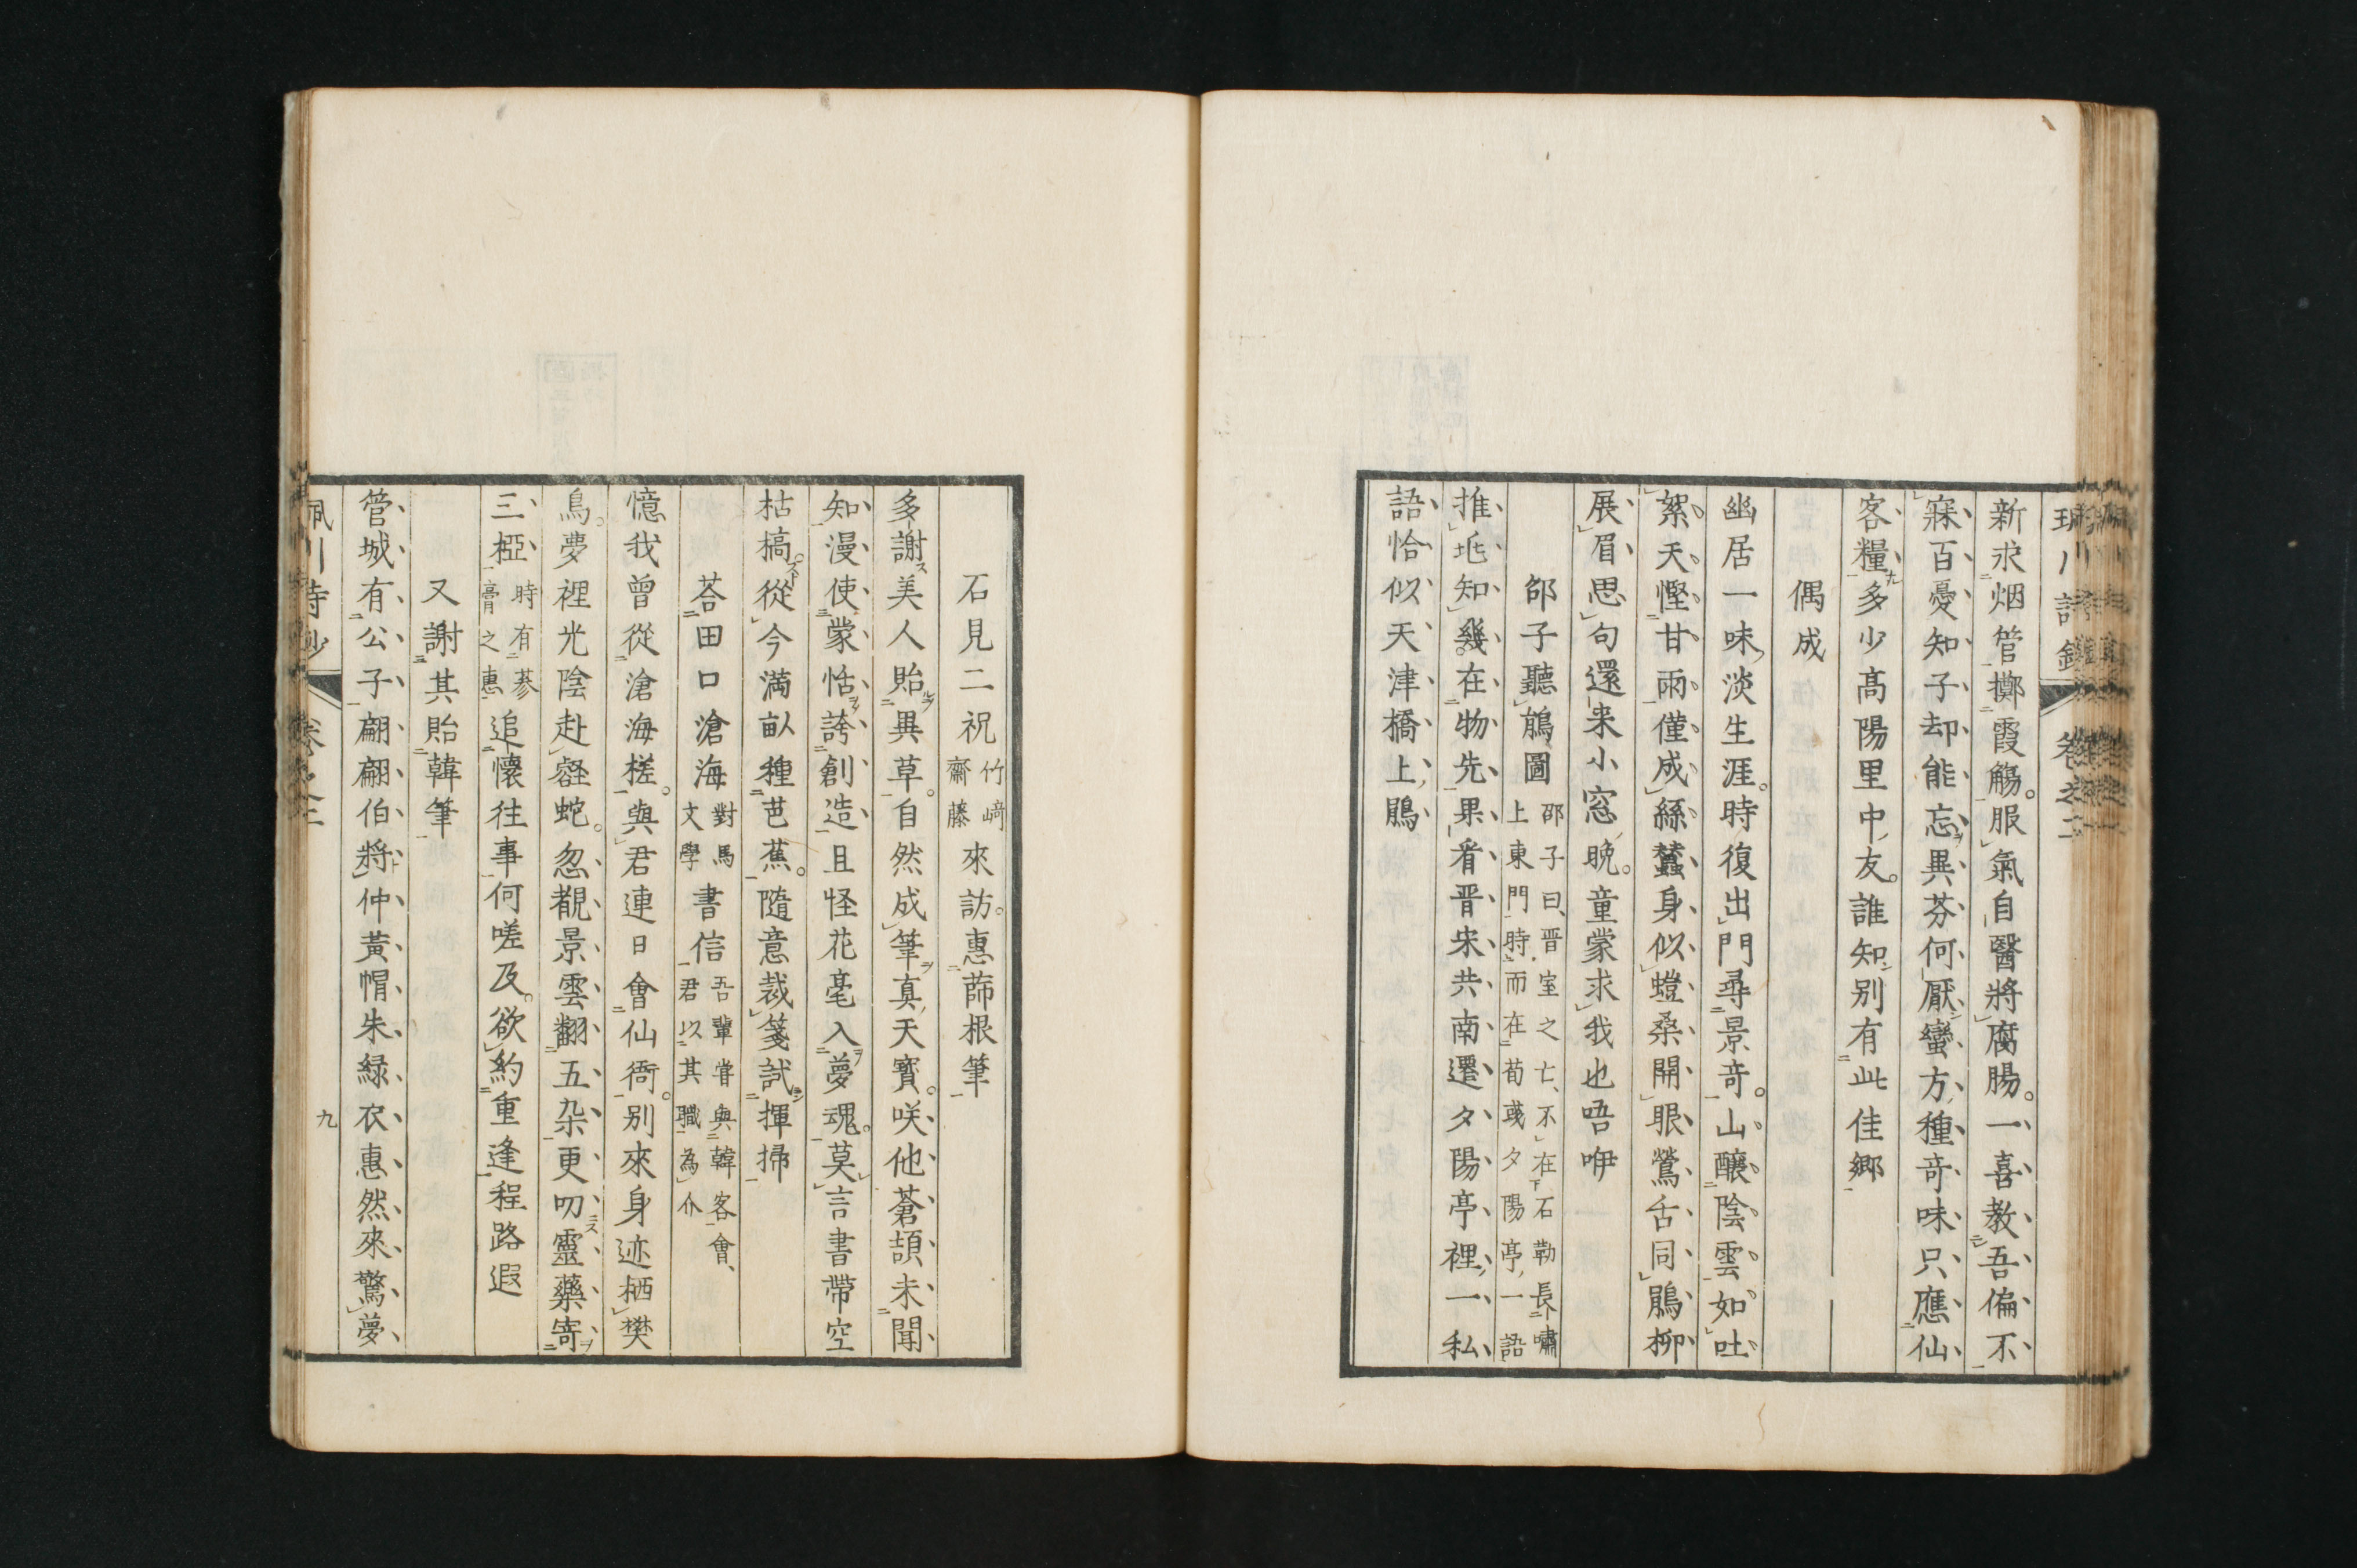 新求烟管擲霞觴。服氣自醫將腐腸。一喜教吾偏不
寐百憂知子却能忘異芬何厭蠻方種奇味只應仙
客糧多少髙陽里中友。誰知別有此佳郷
偶成
幽居一味淡生涯。時復出門尋景奇。山醸陰雲如吐
絮天慳甘雨僅成絲蠶身似螘桑開眼鶯舌同鵑柳
展眉思句還来小窓晩。童蒙求我也唔咿
邵子聽鵑圖
邵子曰、晋室之亡、不在石勒長嘯
上東門時、而在荀彧夕陽亭一語
推嘥知幾在物先果看晋宋共南遷夕陽亭裡一私
語恰似天津橋上鵑
石見二祝竹﨑齋藤來訪。惠蒒根筆
多謝美人貽異草。自然成筆真天寳。咲他蒼頡未聞
知漫使蒙恬誇創造且怪花毫入夢魂。莫言書帶空
枯槁。從今満畝種芭蕉。隨意裁箋試揮掃
荅田口滄海對馬文學書信吾輩嘗與韓客會、君以其職為介
憶我曾從滄海槎。與君連日會仙衙。別來身迹栖樊
鳥。夢裡光陰赴壑蛇。忽覩景雲翻五朶更叨靈藥寄
三椏時有蔘膏之惠追懷往事何嗟及。欲約重逢程路遐
又謝其貽韓筆
管城有公子翩翩伯將仲黃帽朱緑衣惠然來驚夢
卷之二
九